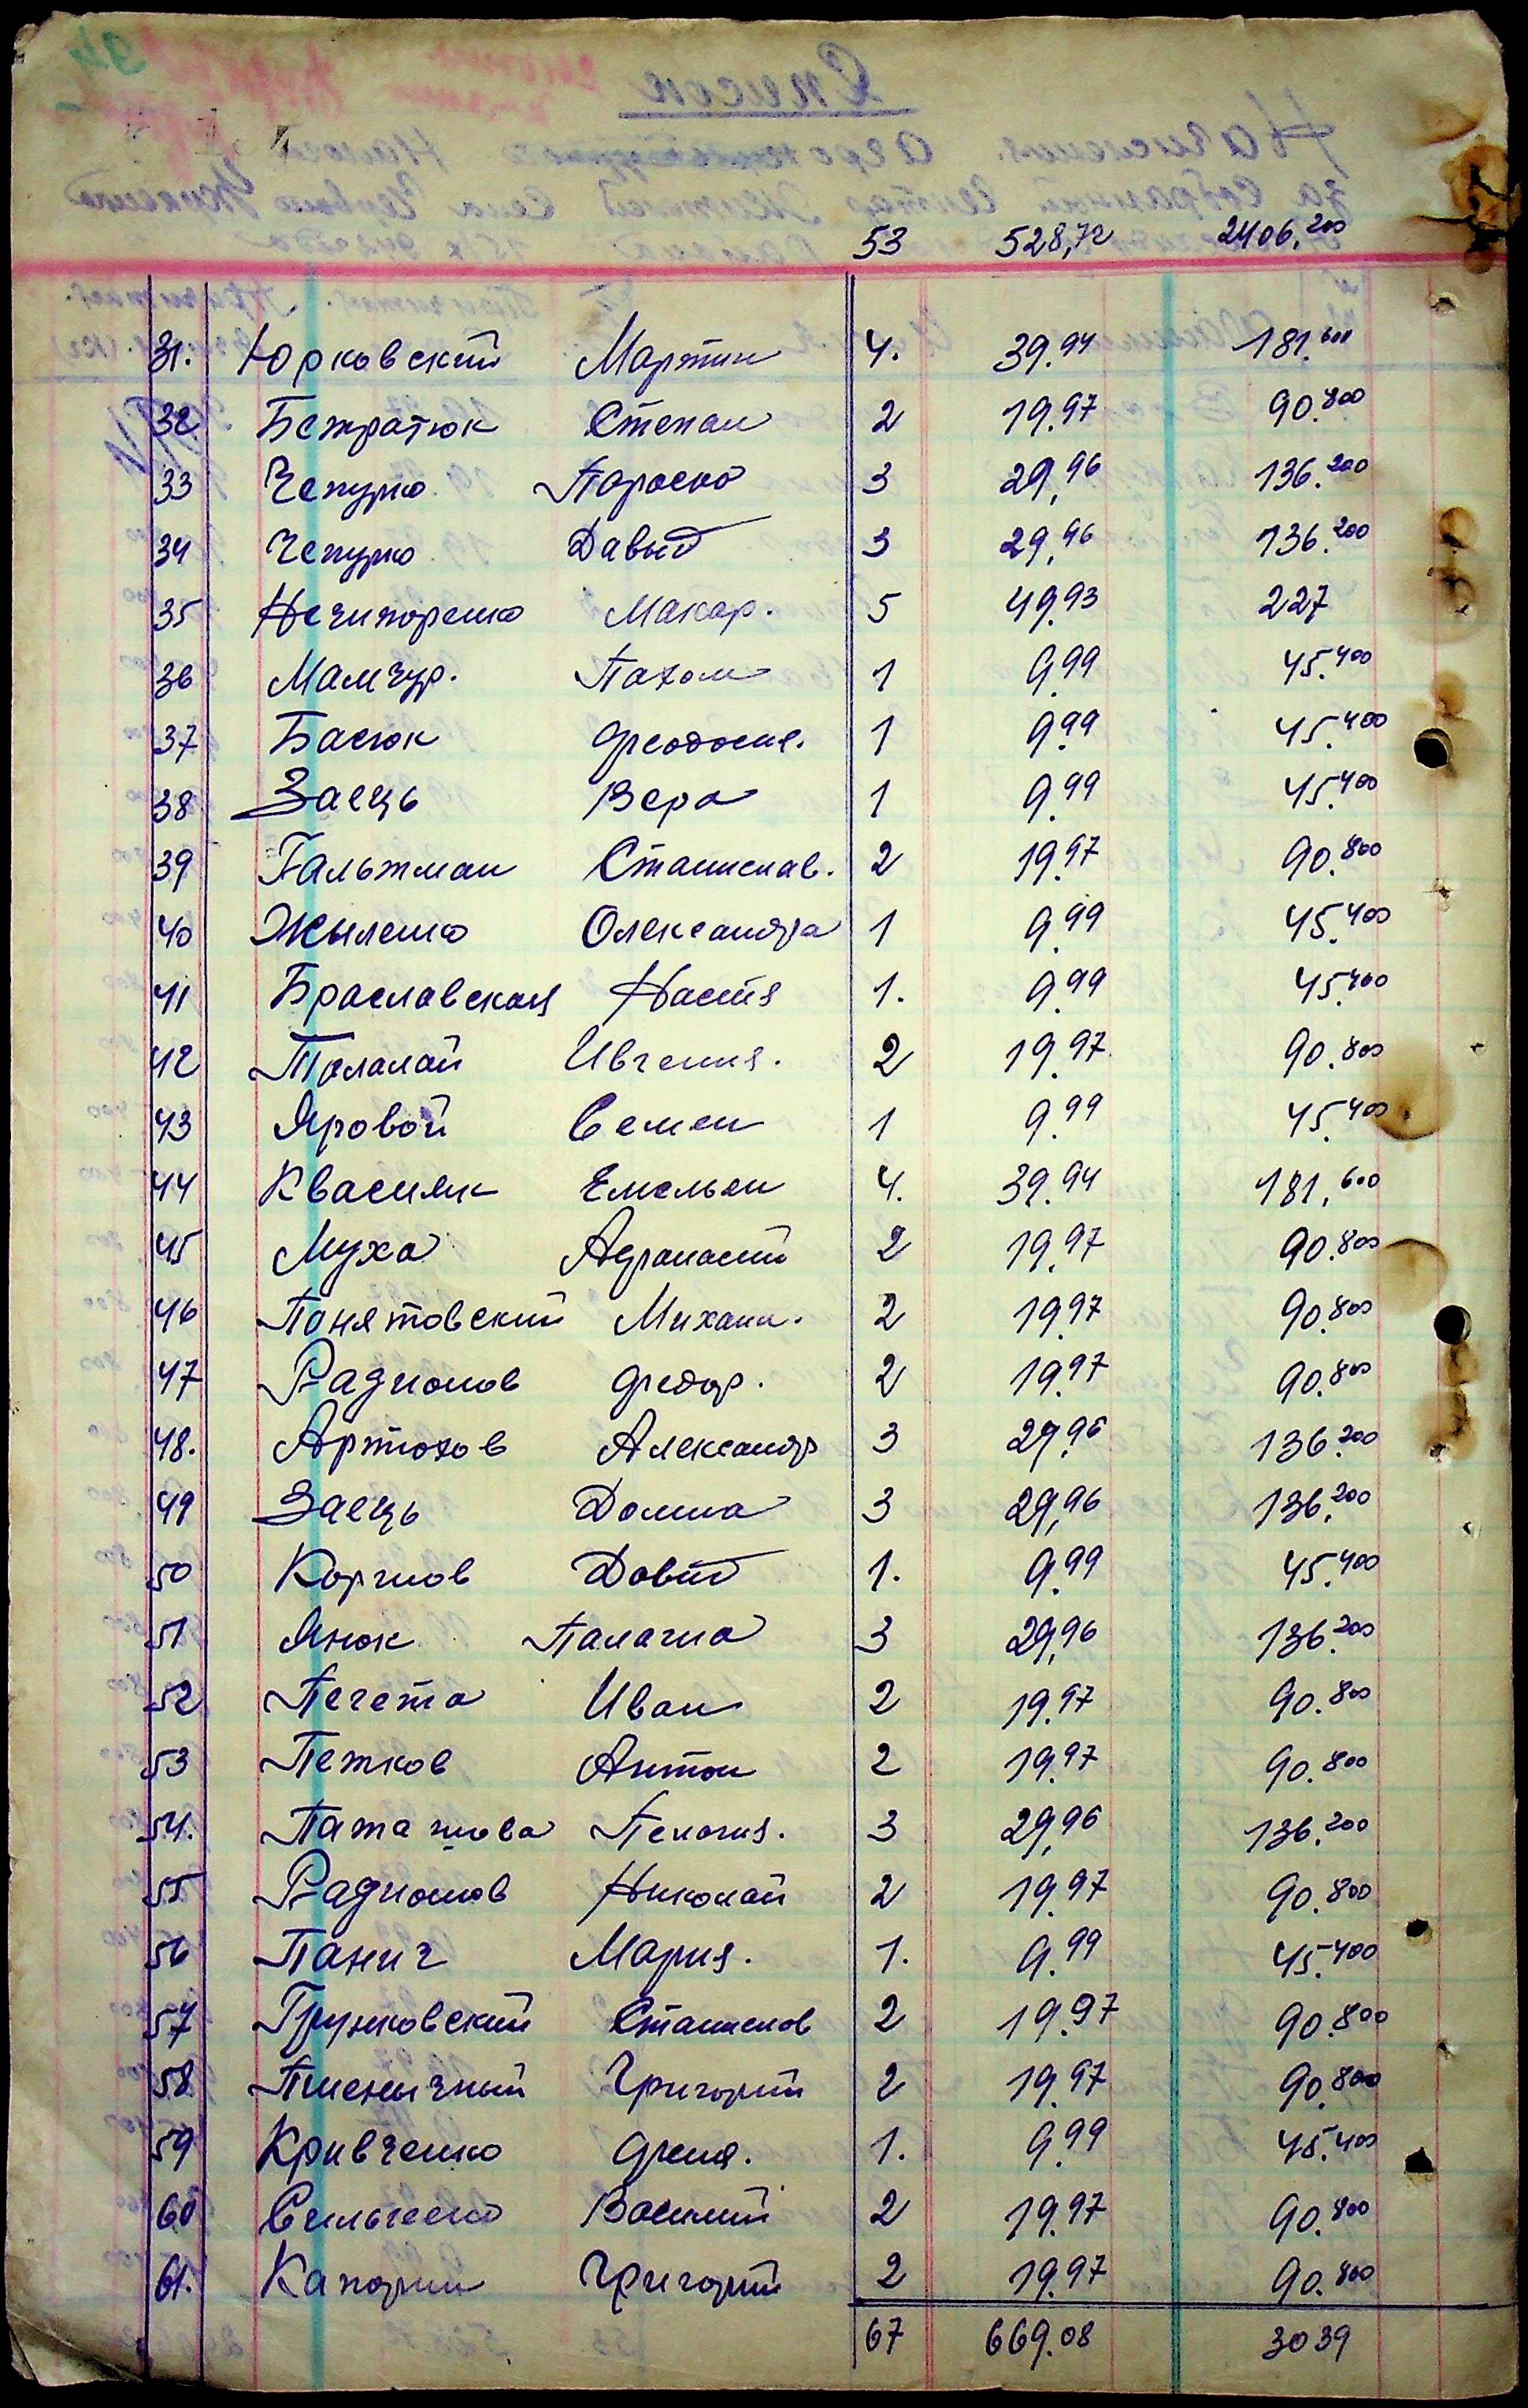 53 528,72 2406,200
31. Юрковский Мартин 4. 39.94 181.600
32. Бежратюк Степан 2 19.97 90.800
33 Чепурко Параско 3 29,96 136.200
34 Чепурко Давыд 3 29,96 136.200
35 Нечипоренко Макар. 5 49.93 227
36 Мамчур. Пахом 1 9.99 45.400
37 Басюк Феодосия. 1 9.99 45.400
38 Заець Вера 1 9.99 45.400
39 Гальжман Станислав. 2 19.97 90.800
40 Жыленко Олександра 1 9.99 45.400
41 Браславская Настя 1. 9.99 45.400
42 Талалай Ивгения. 2 19.97 90.800
43 Яровой Семен 1 9.99 45.400
44 Квасняк Емельян 4. 39.94 181,600
45 Муха Афанасий 2 19.97 90.800
46 Понятовский Михаил. 2 19.97 90.800
47 Радионов Федор. 2 19.97 90.800
48. Артюхов Александр 3 29,96 136.200
49 Заець Домна 3 29,96 136.200
50 Коргнов Довид 1. 9.99 45.400
51 Янюк Палагна 3 29,96 136.200
52 Печета Иван 2 19.97 90.800
53 Пежков Антон 2 19.97 90.800
54. Пелагия. 3 29,96 136.200
55 Радионов Николай 2 19.97 90.800
56 Панич Мария. 1. 9.99 45.400
57 Грушковский Станислав 2 19.97 90.800
58 Пшеничный Григорий 2 19.97 90.800
59 Кривченко Феня. 1. 9.99 45.400
60 Сильченко Василий 2 19.97 90.800
61. Капорин Григорий 2 19.97 90.800
67 669.08 3039